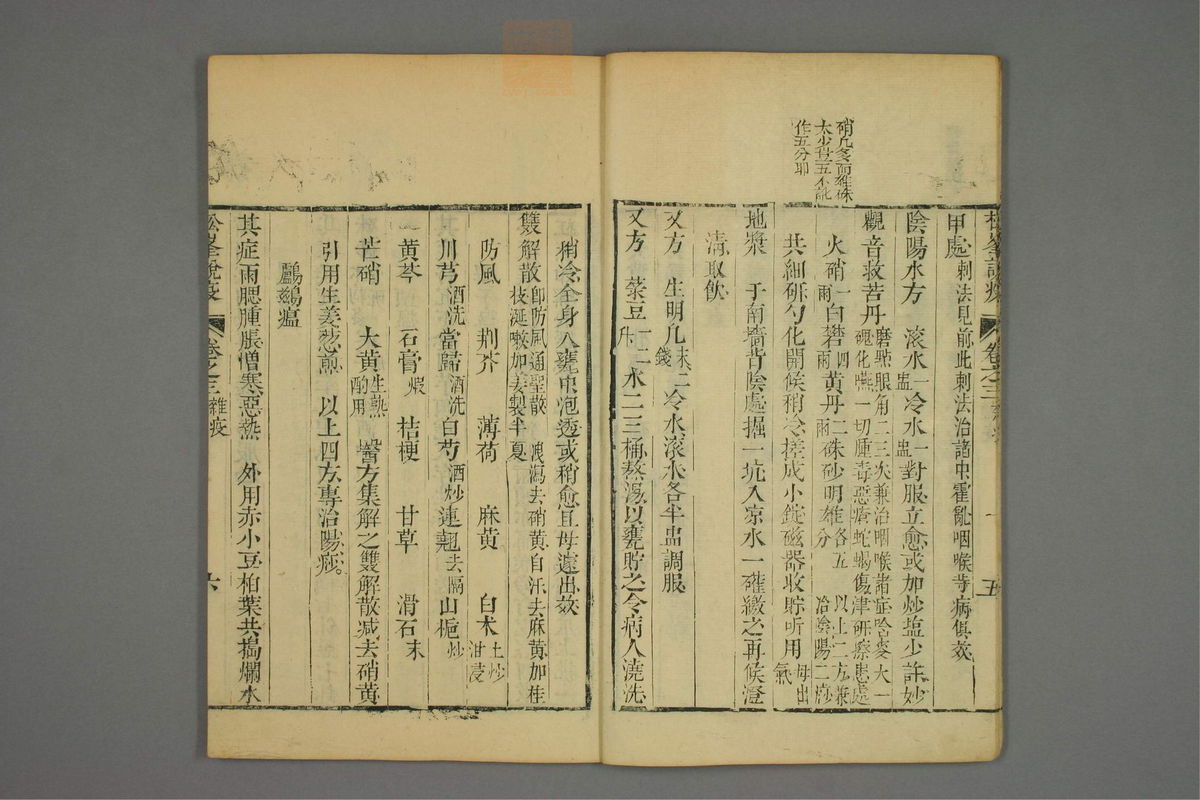 硝凡多而雄硃
太少得五不訛
作五分耶
松峯說疫 卷之三 五
甲處刺法見前此刺法治諸中霍亂咽喉等病俱效
陰陽水方 滾水一盅冷水一盅對服立愈或加炒塩少許妙
觀音救苦丹磨點眼角二三次兼治咽喉諸症吟麥大一塊化嚥一切腫毒惡瘡蛇蝎傷津研擦患處
火硝一兩白礬四兩黃丹二兩硃砂明雄各五分 以上二方兼治陰陽二痧
共細研勺化開候稍冷搓成小錠磁器收貯听用毋出氣
地漿 于南墻背陰處掘一坑入凉水一礶繳之再候澄
清取飲
又方 生明凡末二錢冷水滾水各半盅調服
又方 菉豆一二升水二三桶熬湯以甕貯之令病人澆洗
稍冷全身入甕中泡透或稍愈且毋遽出效
雙解散卽防風通聖散浪瀉去硝黃自汗去麻黃加桂枝涎嗽加姜製半夏
防風 荆芥 薄荷 麻黃 白术土炒泔浸
川芎酒洗當歸酒洗白芍酒炒連翹去隔山梔炒
黃芩 石膏煆 桔梗 甘草 滑石末
芒硝 大黃生熟酌用 醫方集解之雙解散减去硝黃
引用生姜葱煎 以上四方專治陽痧。
鸕鷀瘟
其症兩腮腫脹憎寒惡熱 外用赤小豆柏葉共搗爛水
松峯說疫 卷之三 雜疫 六